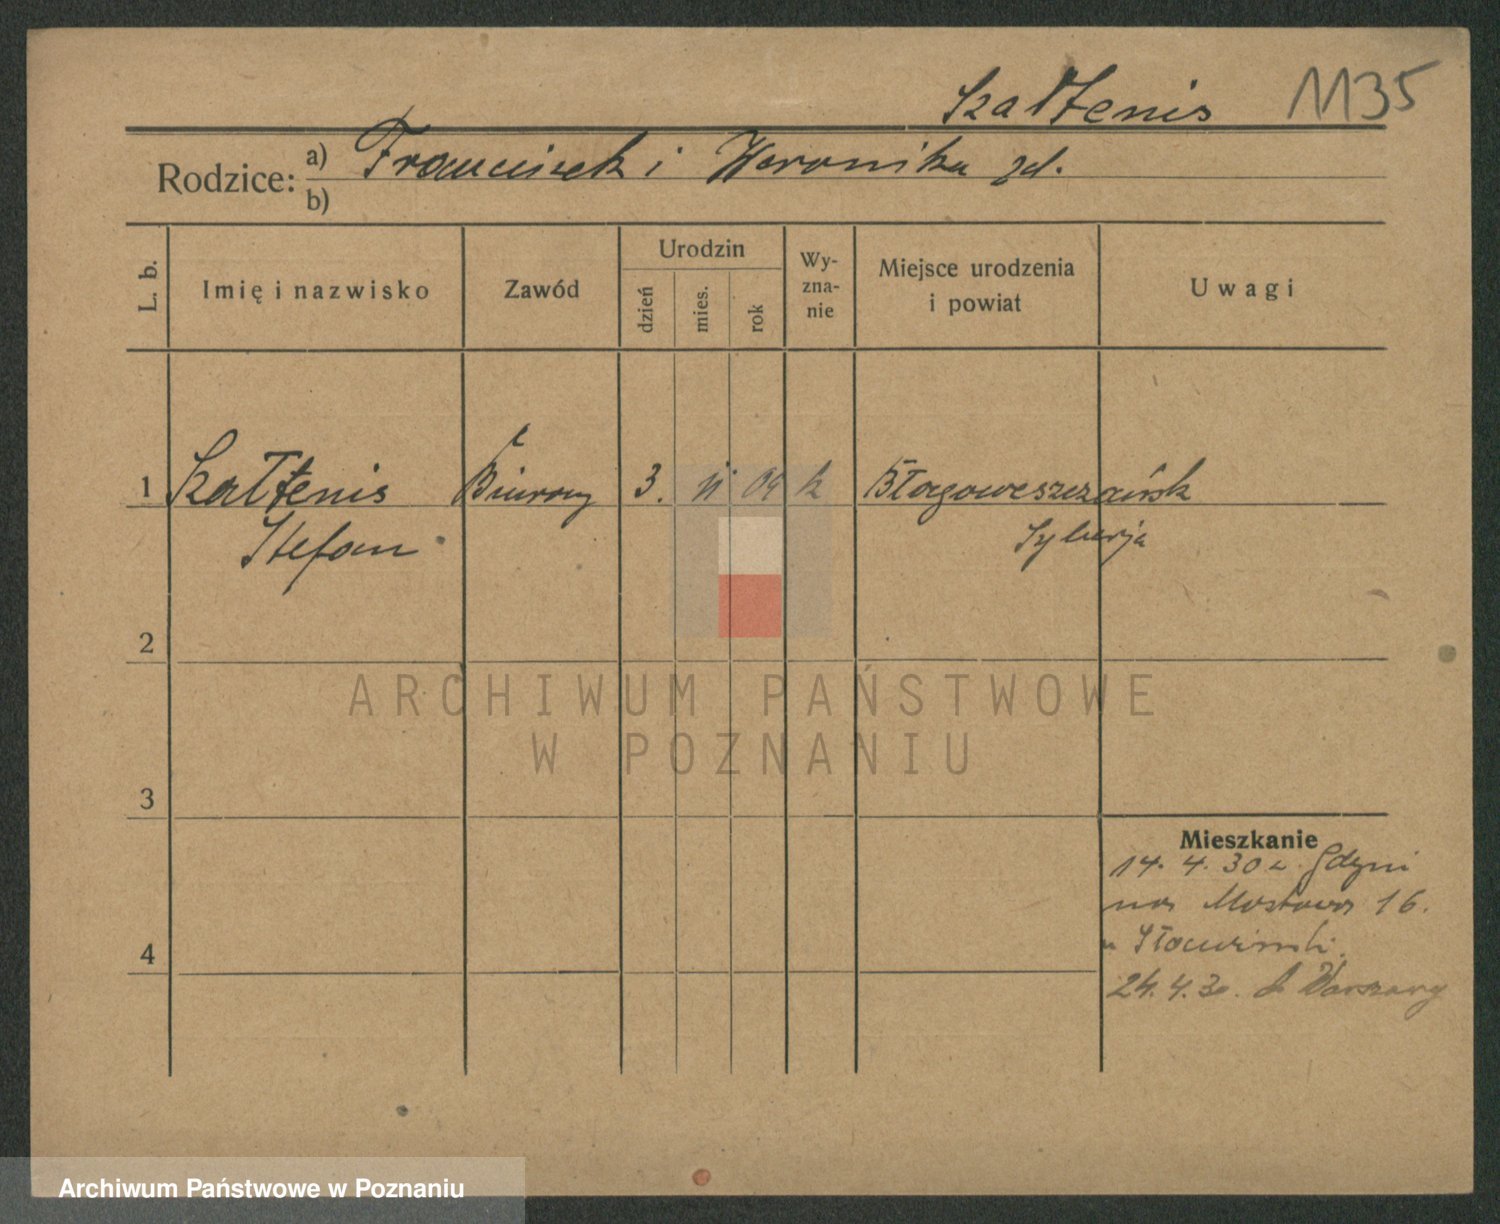 Szałtenis 1135
Rodzice: a) Franciszek i Weronika
b)
L. b. Imię i nazwisko Zawód Urodzin dzień mies. rok Wy-zna-nie Miejsce urodzenia i powiat Uwagi
1 Szałtenis Biurowy 3. 11 04 k Błagoweszczańsk
Stefan Syberja
2
3
Mieszkanie
14. 4. 30 z Gdyni
na Mostowa 16.
4
24. 4. 30. do Warszawy
ARCHIWUM PAŃSTWOWE
W POZNANIU
Archiwum Państwowe w Poznaniu